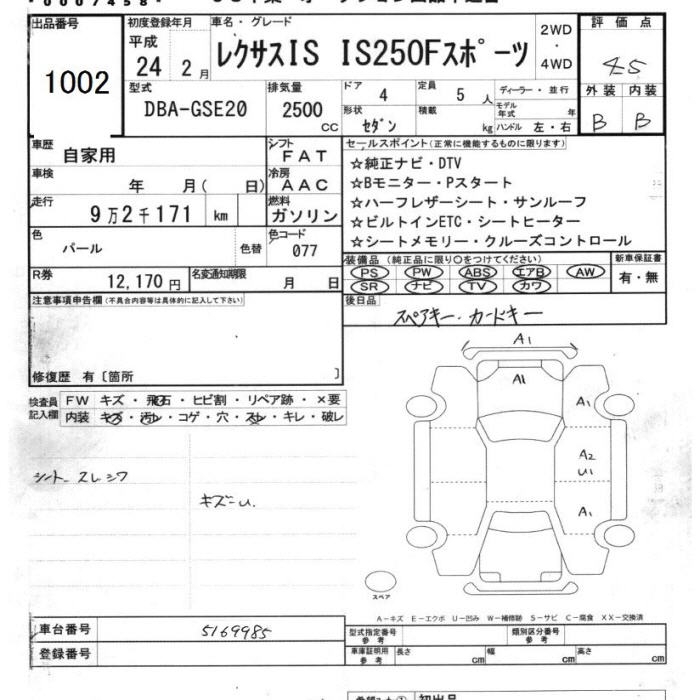 0007458
出品番号
1002
初度登録年月
平成
24 2月
車名・グレード
レクサスIS IS250Fスポーツ
2WD
・
4WD
評価点
4.5
外装 内装
B B
型式
DBA-GSE20
排気量
2500
cc
ドア 4
定員 5 人
形状 セダン
積載 kg
ディーラー・並行
モデル年式 年
ハンドル 左・右
車歴 自家用
シフト FAT
車検 年 月( 日)
冷房 AAC
走行 9万2千171 km
燃料 ガソリン
色 パール 色替
色コード 077
R券 12,170円
名変通知期限 月 日
セールスポイント(正常に機能するものに限ります)
☆純正ナビ・DTV
☆Bモニター・Pスタート
☆ハーフレザーシート・サンルーフ
☆ビルトインETC・シートヒーター
☆シートメモリー・クルーズコントロール
装備品(純正品に限り〇をつけてください)
PS PW ABS エアB AW
SR ナビ TV カワ
新車保証書
有・無
後日品
スペアキー・カードキー
注意事項申告欄(不具合内容等は具体的に記入して下さい)
修復歴 有〔箇所 〕
検査員記入欄
FW キズ・飛石・ヒビ割・リペア跡・×要
内装 キズ・汚レ・コゲ・穴・スレ・キレ・破レ
シート スレ シワ
キズ=U.
A1
A1
A1
A2
U1
A1
スペア
A-キズ E-エクボ U-凹み W-補修跡 S-サビ C-腐食 XX-交換済
車台番号 5169985
登録番号
型式指定番号 参考
類別区分番号 参考
車庫証明用 参考
長さ cm 幅 cm 高さ cm
初出品